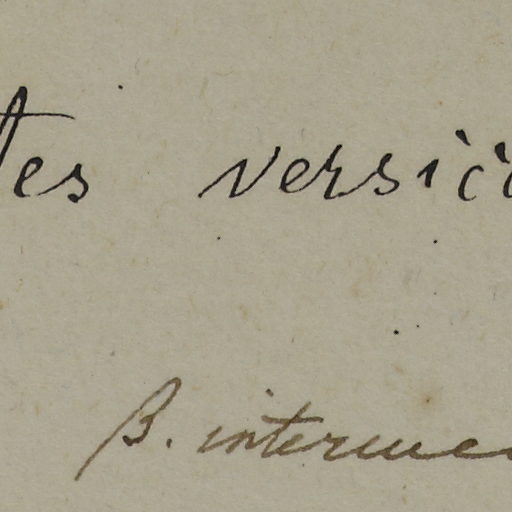 tes versic
β. interme